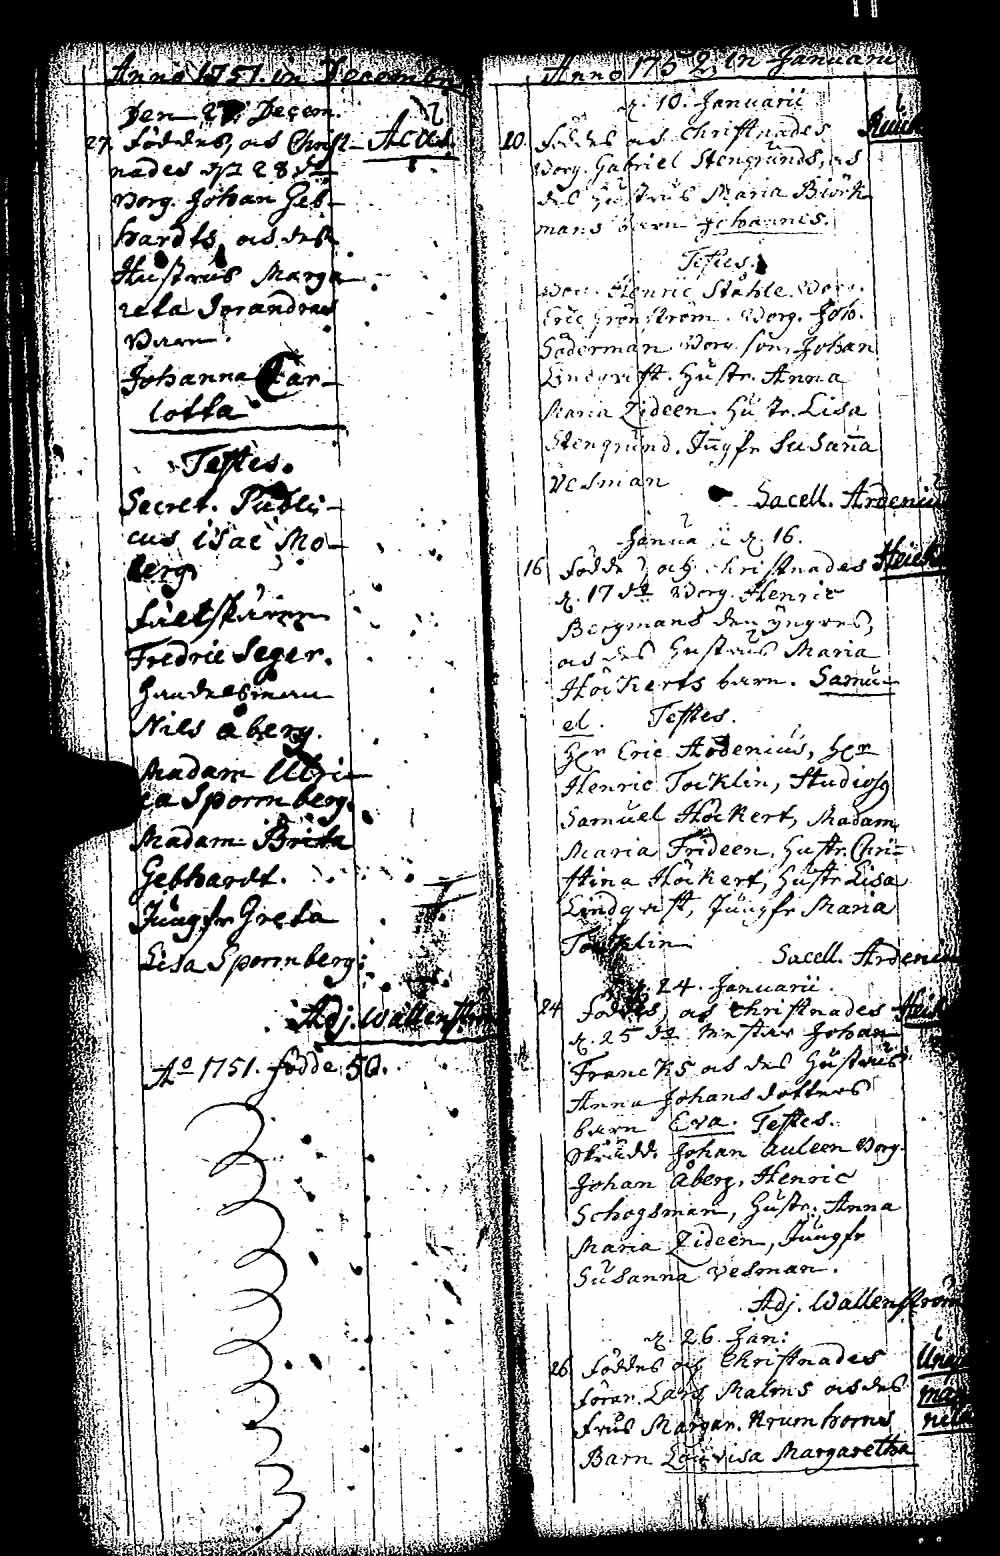 Anno 1751. in Decembri
Den 27 Decem.
27. Föddes, och Christ-
nades den 28 de
Borg. Johan Geb-
hardts och dess
Hustrus Marga
reta
Barn.
Johanna Car-
lotta
Testes.
Secret. Publi-
cus Isac Mo-
berg
Fältskären
Fredric Seger.
Handelsman
Nils Åberg.
Madam Ulri-
ca Spormberg.
Madam Brita
Gebhardt.
Jungfr Greta
Lisa Spormberg.
Adj. Wallenström
Ao 1751. födde 50.
Anno 1752, in Januarii
d. 10. Januarii
10. Föddes och Christnades
Borg. Gabriel Stengrunds, och
des Hustrus Maria Biörk
mans barn Johannes.
Testes.
Borg. Henric Ståhle. Borg.
Eric Grönström. Borg. Joh.
Söderman Borg. son Johan
Lindqvist. Hustr. Anna
Maria Zideen. Hustr. Lisa
Stengrund. Jungfr Susanna
Vesman
Sacell. Ardenius
Januarii d. 16.
16 Föddes och Christnades
d. 17 de Borg. Henric
Bergmans den yngres,
och des Hustrus Maria
Höckerts barn. Samu-
el. Testes.
Her Eric Ardenius, Her
Henric Tocklin, Studios
Samuel Höckert, Madam
Maria Frideen, Hustr. Chri-
stina Höckert, Hustr Lisa
Lindqvist, Jungfr Maria
Tocklin
Sacell. Ardenius
d. 24. Januarii.
24 Föddes, och Christnades
d. 25 de Mester Johan
Francks och des Hustrus
Anna Johans dotters
barn Eva. Testes.
Johan Auleen Borg.
Johan Åberg, Henric
Schogsman, Hustr. Anna
Maria Zideen, Jungfr
Susanna Vesman.
Adj. Wallenström
d. 26. Jan:
26 Föddes och Christnades
Lars Malms och des
Frus Margar. Krumhorns
Barn Lovisa Margaretha